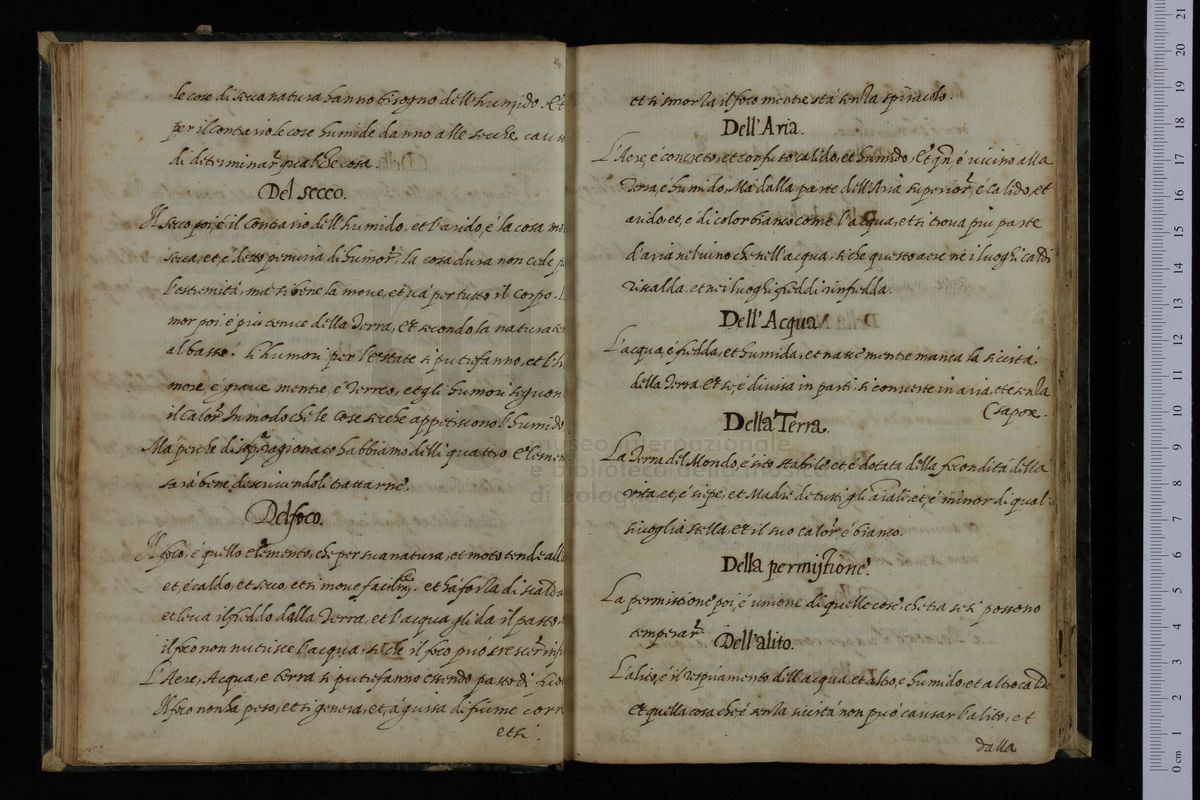 le cose di secca natura hanno bisogno dell'humido. Et
per il contrario le cose humide danno alle secche caus
di determinar qualche cosa.
Del secco.
Il seco poi, è il contrario dell'humido, et l'arido, è la cosa
secca, et, è detto penuria di humor, la cosa dura non cede
l'estremità, mà si bene la move, et và per tutto il corpo.
mor poi, è piu tenue della Terra, et secondo la natura
al basso. Li humori per l'estate si putrefanno, et l'h
more, è grave, mentre, è Terreo, et gli humori seguon
il Calor, In modo che le cose secche appetiscono l'humido
Mà perche di sopra ragionato habbiamo delli quattro Elemen
sarà bene descrivendoli trattarne.
Del foco.
Il foco, è quello elemento, che per sua natura, et moto tende all
et, è caldo, et seco, et si move et hà forza di scalda
et leva il freddo dalla Terra, et l'acqua gli dà il pasto,
il foco non nutrisce l'acqua, si che il foco può crescer inf
L'Aere, Acqua, e terra si putrefanno essendo pasto di
Il foco non hà peso, et si genera, et, à guisa di fiume corr
et si
et si smorza il foco mentre stà senza spiracolo.
Dell'Aria.
L'Aere, è concreto, et confuso calido, et humido, Et qn, è vicino alla
Terra è humido, Mà dalla parte dell'Aria superior, è calido, et
arido, et, è di color bianco come l'acqua, et si trova più parte
d'aria nel vino che nell'acqua, si che questo aere ne i luoghi caldi
riscalda, et nei luoghi freddi rinfredda.
Dell'Acqua
L'acqua, è fredda, et humida, et nasce mentre manca la siccità
della Terra, Et se, è divisa in parti, si converte in aria, et è senza
sapore.
Della Terra.
La Terra del Mondo, è sito stabile et è dotata della fecondità della
vita, et, è siepe, et Madre de tutti gli aiali, et, è minor di qual
sivoglia stella, Et il suo calor è bianco.
Della permistione.
La permissione poi, è unione di quelle cose, che tra se si possono
temperar.
Dell'alito.
L'alito, è il respiramento dell'acqua, et altro, e humido, et altro caldo
et quella cosa che è senza siccità non può causar l'alito, et
dalla
museo internazionale
e biblioteca della
di bologna